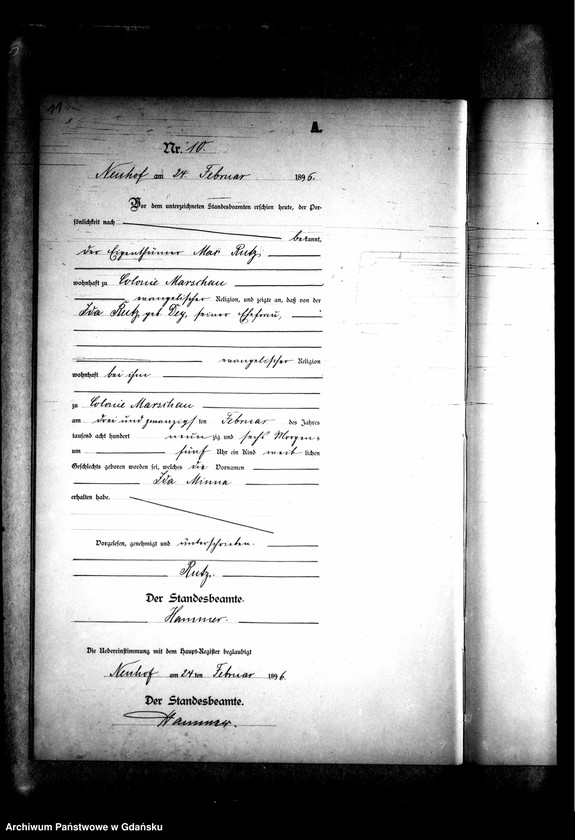 A.
Nr. 10.
Neuhof am 24. Februar 1896.
Vor dem unterzeichneten Standesbeamten erschien heute, der Per-
sönlichkeit nach
bekannt,
der Eigenthümer Max Rutz
wohnhaft zu Colonie Marschau
evangelischer Religion, und zeigte an, daß von der
Ida Rutz geb. Dey, seiner Ehefrau,
evangelischer Religion
wohnhaft bei ihm
zu Colonie Marschau
am drei und zwanzigsten Februar des Jahres
tausend acht hundert neunzig und sechs Morgens
um fünf Uhr ein Kind weiblichen
Geschlechts geboren worden sei, welches die Vornamen
Ida Minna
erhalten habe.
Vorgelesen, genehmigt und unterschrieben.
Rutz.
Der Standesbeamte.
Hammer.
Die Uebereinstimmung mit dem Haupt-Register beglaubigt
Neuhof am 24 ten Februar 1896.
Der Standesbeamte.
Hammer.
Archiwum Państwowe w Gdańsku